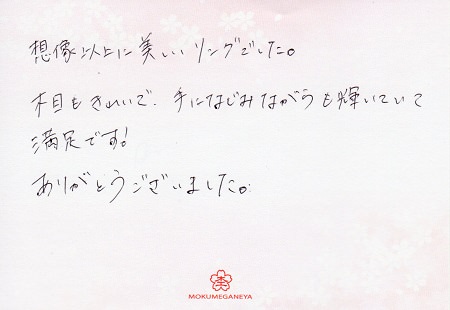 想像以上に美しいリングでした。
木目もきれいで、手になじみながらも輝いていて
満足です!
ありがとうございました。
MOKUMEGANEYA